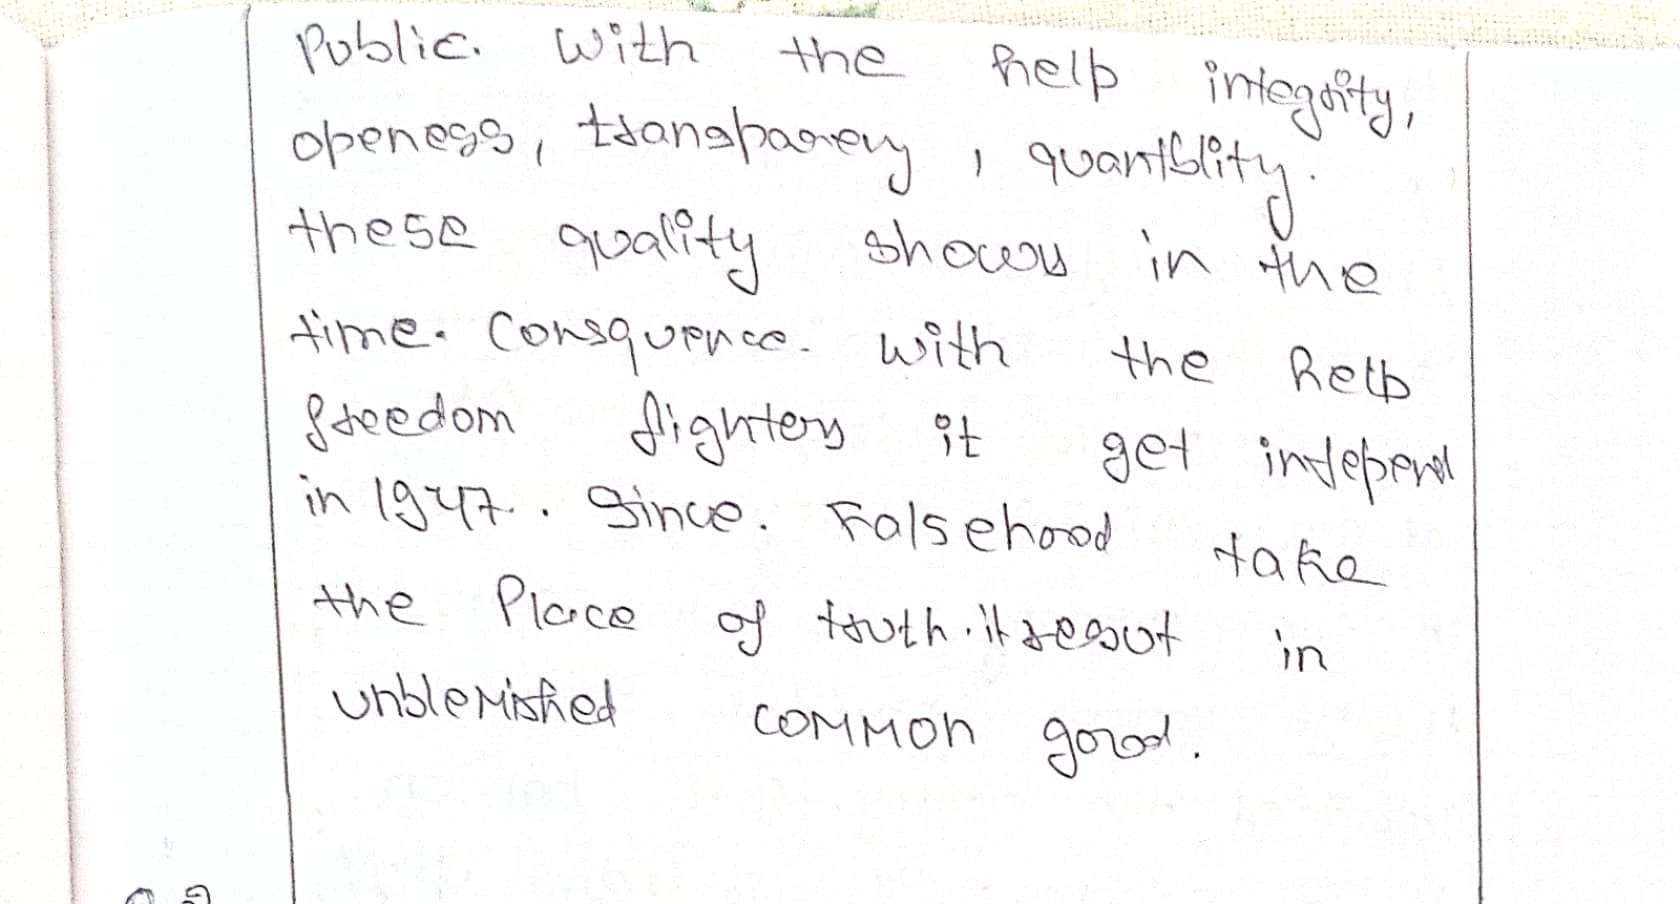 Public. With the help integrity,
openess, transparery, quantblity.
these quality shows in the
time. Consquence. with the help
freedom fighters it get independ
in 1947. Since. Falsehood take
the Place of truth. it resut in
unblemished common good.